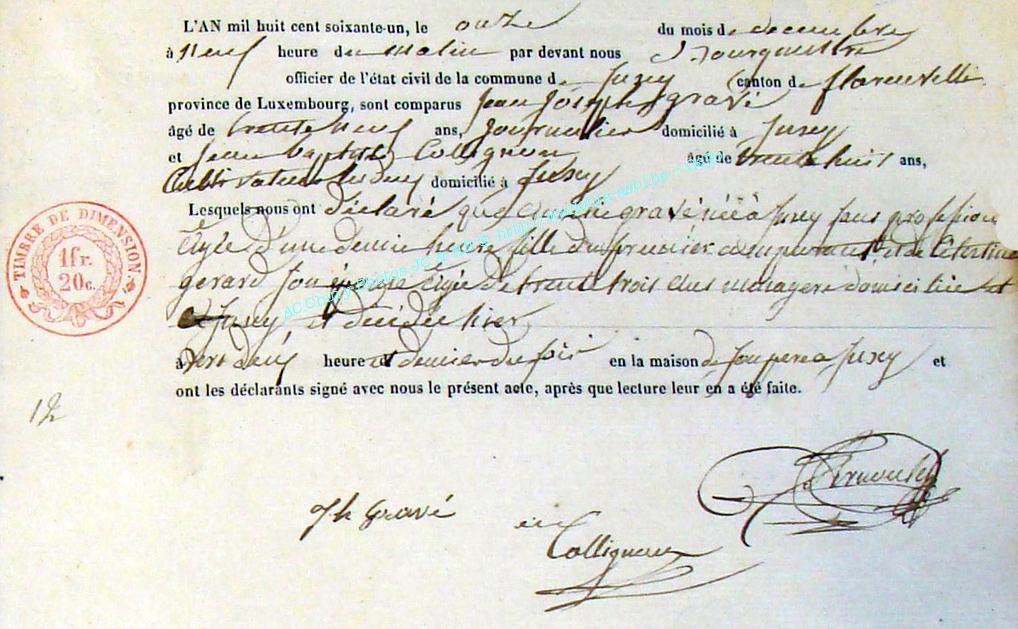 L'AN mil huit cent soixante-un, le onze du mois de decembre
à neuf heure du matin par devant nous
officier de l'état civil de la commune de Juzey canton de florenville
province de Luxembourg, sont comparus Jean Joseph gravé
âgé de trente neuf ans, Journalier domicilié à Juzey
et Jean baptiste Collignon âgé de trente huit ans,
Cultivateur les deux domicilié à Juzey
Lesquels nous ont déclaré que gravé née à Juzey sans profession
agée d'une demie heure fille du premier comparant et de
gerard son épouse agée de trente trois ans menagere domiciliée
à Juzey est décédée hier
à vers deux heure et demie du soir en la maison de son pere a Juzey et
ont les déclarants signé avec nous le présent acte, après que lecture leur en a été faite.
TIMBRE DE DIMENSION
1fr.
20c.
12
Jh Gravé
Collignon